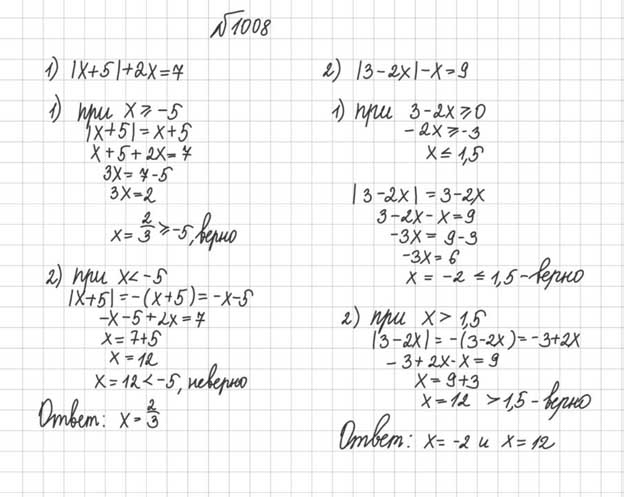 №1008
1) |x+5|+2x=7
1) при x ≥ -5
|x+5| = x+5
x+5+2x=7
3x= 7-5
3x=2
x= 2/3 ≥ -5, верно
2) при x < -5
|x+5| = -(x+5) = -x-5
-x-5+2x=7
x= 7+5
x = 12
x = 12 < -5, неверно
Ответ: x = 2/3
2) |3-2x|-x=9
1) при 3-2x ≥ 0
-2x ≥ -3
x ≤ 1,5
|3-2x| = 3-2x
3-2x-x=9
-3x= 9-3
-3x=6
x = -2 ≤ 1,5 - верно
2) при x > 1,5
|3-2x| = -(3-2x) = -3+2x
-3+2x-x=9
x = 9+3
x=12 > 1,5 - верно
Ответ: x= -2 и x=12